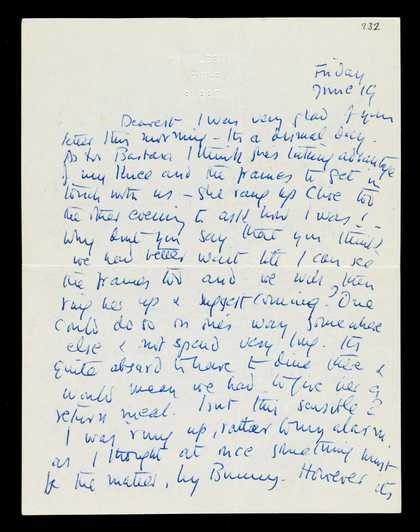 232
Friday
June 19
Dearest I was very glad of your
letter this morning – It's a dismal day.
As for Barbara I think she's taking advantage
of my knee and the frames to get in
touch with us – she rang up Clive too
the other evening to ask how I was!
Why don't you say that you think
we had better wait till I can see
the frames too and we will then
ring her up & suggest coming? One
could do so on one's way somewhere
else & not spend very long. It's
quite absurd to have to dine there &
would mean we had to give her a
return meal. Isn't this sensible?
I was rung up, rather to my alarm
as I thought at once something must
be the matter, by Bunny. However it's